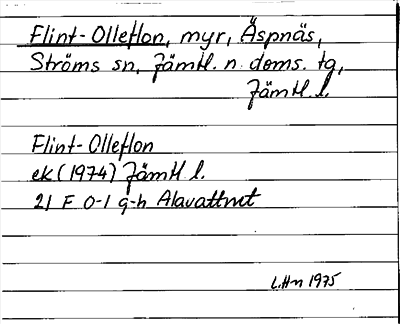 Flint-Olleflon, myr, Äspnäs,
Ströms sn, Jämtl. n. doms. tg,
Jämtl. l.
Flint-Olleflon
ek (1974) Jämtl l.
21 F 0-1 g-h Alavattnet
L.Hn 1975